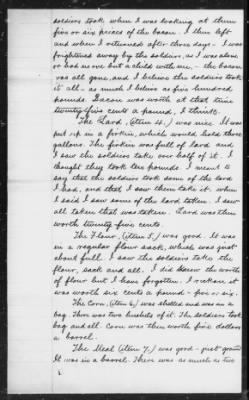 soldiers took when I was looking at them
five or six pieces of the bacon. I then left
and when I returned after three days - I was
frightened away by the soldiers, as I was alone
or had no one but a child with me. - the bacon
was all gone, and I believe the soldiers took
it all - as much I believe as five hundred
pounds. Bacon was worth at that time
twenty five cents a pound, I think.
The Lard (Item 4.) was nice. It was
put up in a firkin, which would hold three
gallons. The firkin was full of lard and
I saw the soldiers take one half of it. I
thought they took pounds. I meant to
say that the soldiers took some of the lard
I had, and that I saw them take it when
I said I saw some of the lard taken. I saw
all taken that was taken. Lard was then
worth twenty five cents.
The Flour, (Item 5,) was good. It was
in a regular flour sack, which was just
about full. I saw the soldiers take the
flour, sack and all. I did know the worth
of flour but I have forgotten. I reckon it
was worth six cents a pound - five or six.
The Corn, (Item 6) was shelled and was in a
bag. There was two bushels of it. The soldiers took
bag and all. Corn was then worth five dollars
a barrel.
The Meal (Item 7,) was good - just ground
It was in a barrel. There was as much as two